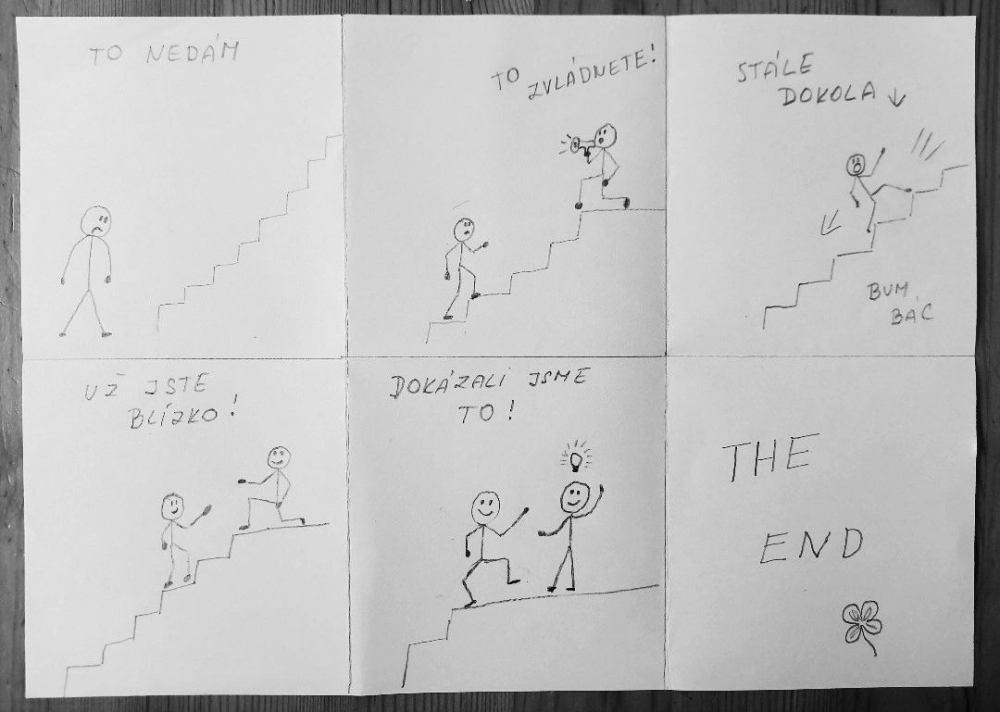 TO NEDÁM
TO ZVLÁDNETE!
STÁLE
DOKOLA
BUM
BÁC
UŽ JSTE
BLÍZKO!
DOKÁZALI JSME
TO!
THE
END